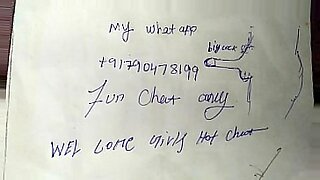 My what app
+91790478199
Fun Chat only
WEL COME girls Hot Chat